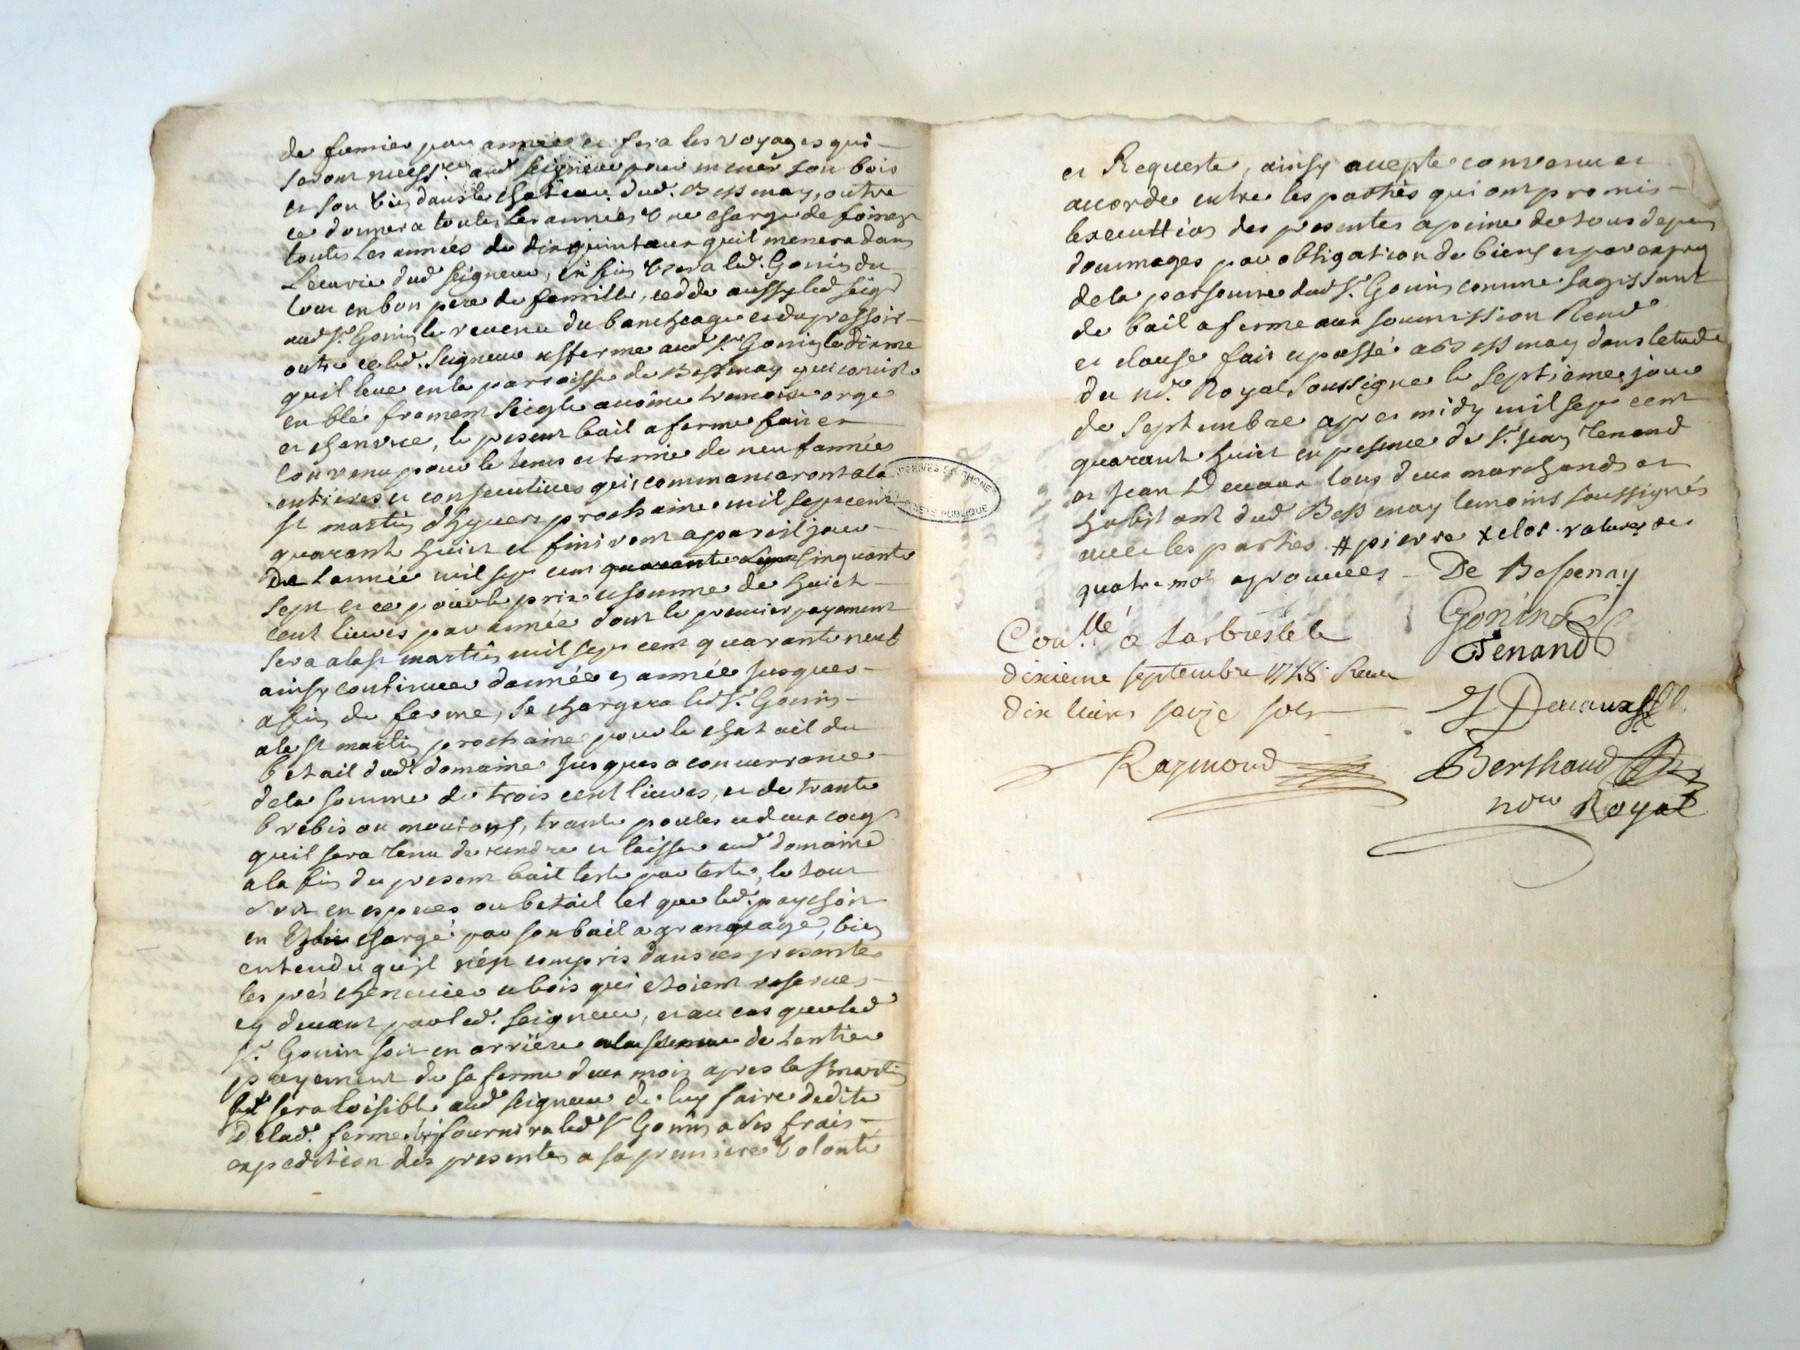 de fumier par année et fera les voyages qui
seront necess.res aud. seigneur pour mener son bois
et son vin dans le chateau dud. Bessenay, outre
ce donnera toutes les années une charge de foin
toutes les années de dix quintaux quil menera dans
Lecurie dud seigneur, en fin usera led. Gonin du
tout en bon pere de famille, cedde aussy led seigr
aud Sr. Gonin le revenu du bancheage et du pressoir
outre ce led. Seigneur afferme aud Sr. Gonin le dixme
quil leve en la parroisse de Bessenay qui consiste
en blé froment seigle avoine tremoise orge
et chenvre, le present bail a ferme fait et
convenu pour le tems et terme de neuf années
entieres et consecutives qui commanceront a la
St martin d'hyver prochaine mil sept cent
quarant huict et finiront a pareil jour
De Lannée mil sept cent quarante sept sinquante
sept et ce pour le prix et somme de huict
cent livres par année dont le premier payement
sera a la St martin mil sept cent quarante neuf
ainsy continuer dannée en année jusques
a fin de ferme, se chargera led Sr. Gonin
a la St martin prochaine pour le chatail du
betail dud. domaine jusques a concurrance
de la somme de trois cent livres, et de trante
brebis ou moutons, trante poules et deux coqs
quil sera tenu de rendre et laisser aud domaine
a la fin du present bail teste par teste, le tout
soit en especes ou betail tel que led. paye soit
en chargé par son bail a grangeage, bien
entendu quil n'est compris dans ces presentes
les prés cheneviere et bois qui etoient reserves
cy devant par led. seigneur, et au cas que led
Sr. Gonin soit en arriere de Lentier
payement de sa ferme deux mois apres la St martin
il sera loisible aud seigneur de luy faire dedite
de lad. ferme, fournira led Sr Gonin a ses frais
expedition des presentes a sa premiere volonté
et Requeste, ainsy accepté convenu et
accordé entre les parties qui ont promis
lexecuttion des presentes a peine de tous depens
doumages par obligation de biens et par exprés
de la personne dud Sr. Gonin comme sagissant
de bail a ferme aux soumission Renon
et clause fait et passé a Bessenay dans letude
du nre. Royal soussigné le septieme jour
de Septembre apres midy mil sept cent
quarant huict en presence de Sr. Jean Tenand
et Jean Devaux tous deux marchands et
habitant dud Bessenay temoins soussignés
avec les parties # pierre x clos. ratures de
quatre mot aprouvées
De Bessenay
Gonin
Tenand
J Devaux
Berthaud
nore Royal
Con.llé a Larbresle le
dixieme septembre 1748. Receu
dix livres saize sols
Raymond
ARCHIVES DU RHONE